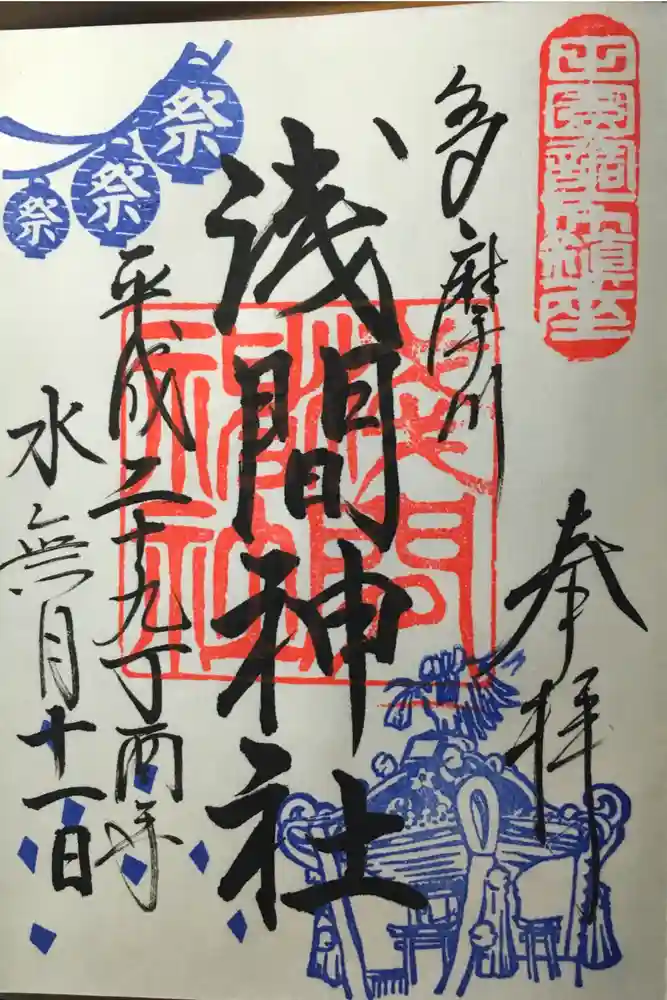 田園調布鎮座
奉拝
多摩川
浅間神社
平成二十九丁酉年
水無月十一日
祭
祭
祭
浅間神社